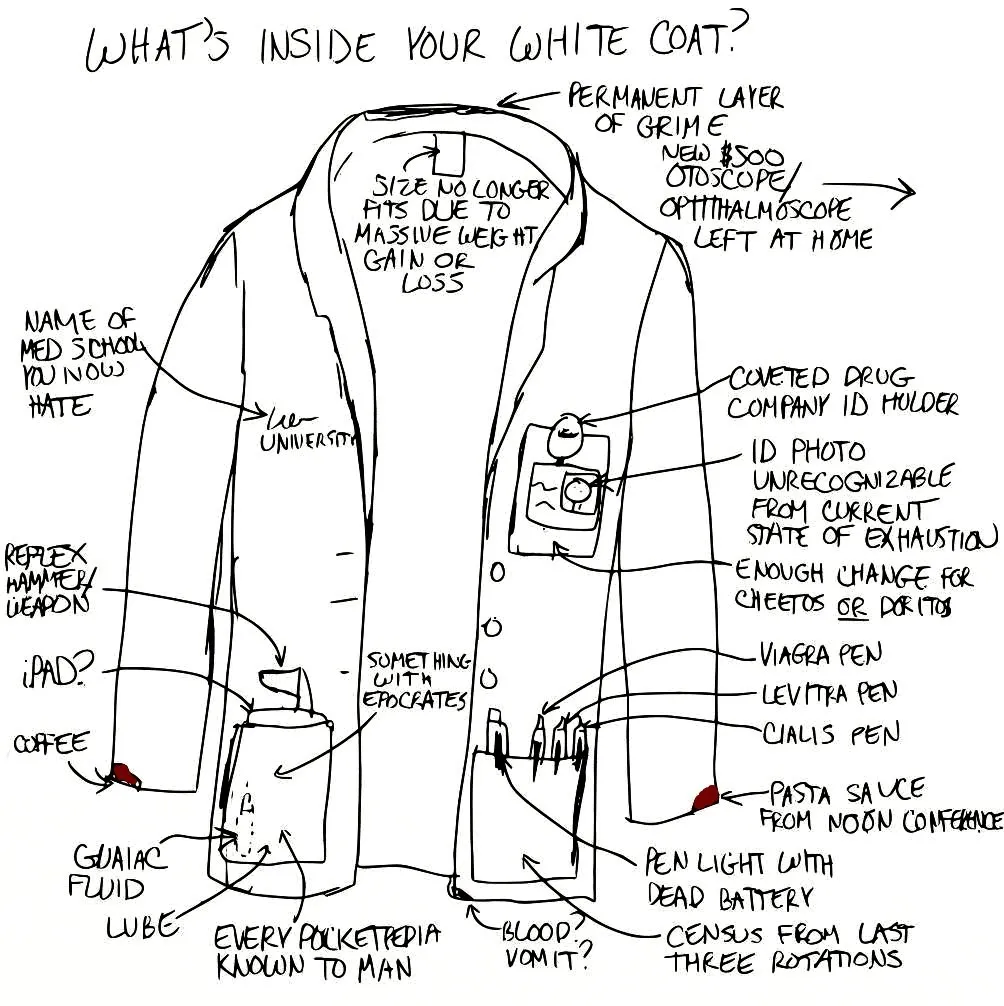 WHAT'S INSIDE YOUR WHITE COAT?
PERMANENT LAYER
OF GRIME
NEW $500
OTOSCOPE/
OPHTHALMOSCOPE
LEFT AT HOME
SIZE NO LONGER
FITS DUE TO
MASSIVE WEIGHT
GAIN OR
LOSS
NAME OF
MED SCHOOL
YOU NOW
HATE
UNIVERSITY
COVETED DRUG
COMPANY ID HOLDER
ID PHOTO
UNRECOGNIZABLE
FROM CURRENT
STATE OF EXHAUSTION
ENOUGH CHANGE FOR
CHEETOS OR DORITOS
REFLEX
HAMMER/
WEAPON
iPAD?
SOMETHING
WITH
EPOCRATES
COFFEE
VIAGRA PEN
LEVITRA PEN
CIALIS PEN
PASTA SAUCE
FROM NOON CONFERENCE
GUAIAC
FLUID
LUBE
EVERY POCKETPEDIA
KNOWN TO MAN
BLOOD?
VOMIT?
PEN LIGHT WITH
DEAD BATTERY
CENSUS FROM LAST
THREE ROTATIONS